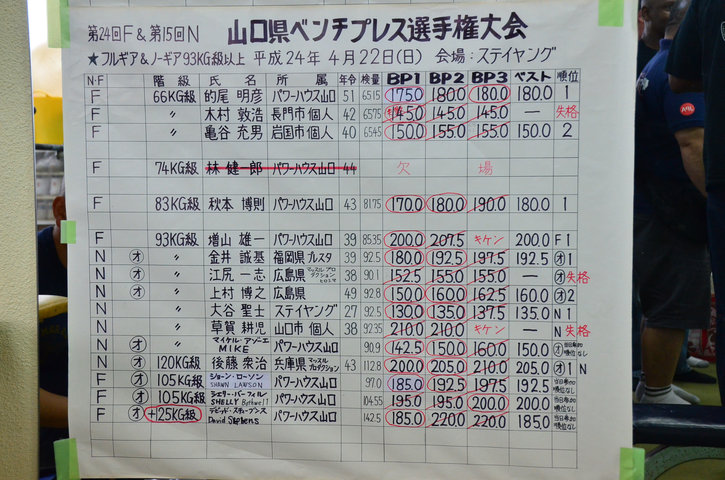 第24回F&第15回N 山口県ベンチプレス選手権大会
★フルギア&ノーギア93KG級以上 平成24年4月22日(日) 会場:ステイヤング
N・F 階級 氏名 所属 年令 検量 BP1 BP2 BP3 ベスト 順位
F 66KG級 的尾 明彦 パワーハウス山口 51 65.15 175.0 180.0 180.0 180.0 1
F 〃 木村 敦浩 長門市 個人 42 65.75 145.0 145.0 145.0 — 失格
F 〃 亀谷 充男 岩国市 個人 40 65.45 150.0 155.0 155.0 150.0 2
F 74KG級 林 健一郎 パワーハウス山口 44 欠場
F 83KG級 秋本 博則 パワーハウス山口 43 81.75 170.0 180.0 190.0 180.0 1
F 93KG級 増山 雄一 パワーハウス山口 39 85.35 200.0 207.5 キケン 200.0 F1
N オ 〃 金井 誠基 福岡県 39 92.5 180.0 192.5 197.5 192.5 オ1
N オ 〃 江尻 一志 広島県 38 90.1 152.5 155.0 155.0 — オ失格
N オ 〃 上村 博之 広島県 49 92.8 150.0 160.0 162.5 160.0 オ2
N 〃 大谷 聖士 ステイヤング 27 92.5 130.0 135.0 137.5 135.0 N1
N 〃 草賀 耕児 山口市 個人 38 92.35 210.0 210.0 キケン — N失格
N 〃 MIKE パワーハウス山口 90.9 142.5 150.0 160.0 150.0 オ 順位なし
N オ 120KG級 後藤 衆治 兵庫県 マッスルプロダクション 43 112.8 200.0 205.0 210.0 205.0 オ1 N
F オ 105KG級 ショーン・ローソン SHAWN LAWSON パワーハウス山口 97.0 185.0 192.5 197.5 192.5 順位なし
F オ 105KG級 SHELLY パワーハウス山口 104.55 195.0 195.0 200.0 200.0 順位なし
F オ +125KG級 デビッド・スティーブンス David Stephens パワーハウス山口 142.5 185.0 220.0 220.0 185.0 順位なし